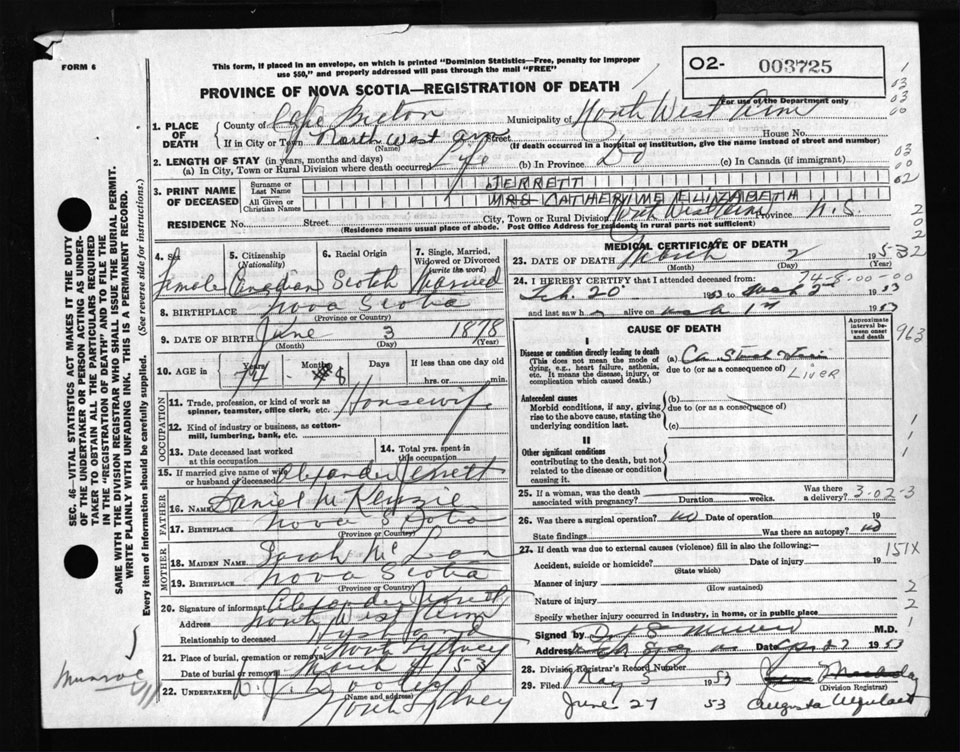 FORM 6
This form, if placed in an envelope, on which is printed "Dominion Statistics—Free, penalty for improper
use $50," and properly addressed will pass through the mail "FREE"
O2- 003725
For use of the Department only
PROVINCE OF NOVA SCOTIA—REGISTRATION OF DEATH
1. PLACE OF DEATH
County of Cape Breton Municipality of North West Arm
If in City or Town North West Arm Street House No.
(Name) (If death occurred in a hospital or institution, give the name instead of street and number)
2. LENGTH OF STAY (in years, months and days)
(a) In City, Town or Rural Division where death occurred Life (b) In Province Do (c) In Canada (if immigrant)
3. PRINT NAME OF DECEASED
Surname or Last Name JERRETT
All Given or Christian Names MRS CATHERINE ELIZABETH
RESIDENCE No. Street City, Town or Rural Division North West Arm Province N.S.
(Residence means usual place of abode. Post Office Address for residents in rural parts not sufficient)
4. Sex Female
5. Citizenship (Nationality) Canadian
6. Racial Origin Scotch
7. Single, Married, Widowed or Divorced (write the word) Married
8. BIRTHPLACE Nova Scotia
(Province or Country)
9. DATE OF BIRTH June 3 1878
(Month) (Day) (Year)
10. AGE in Years 74 Months 8 If less than one day old
hrs. or min.
OCCUPATION
11. Trade, profession, or kind of work as spinner, teamster, office clerk, etc. Housewife
12. Kind of industry or business, as cotton-mill, lumbering, bank, etc.
13. Date deceased last worked at this occupation
14. Total yrs. spent in this occupation
15. If married give name of wife or husband of deceased Alexander Jerrett
FATHER
16. NAME Daniel McKenzie
17. BIRTHPLACE Nova Scotia
(Province or Country)
MOTHER
18. MAIDEN NAME Sarah McLean
19. BIRTHPLACE Nova Scotia
(Province or Country)
20. Signature of informant Alexander Jerrett
Address North West Arm
Relationship to deceased Husband
21. Place of burial, cremation or removal North Sydney
Date of burial or removal March 4 1953
22. UNDERTAKER W. J. Dooley
(Name and address)
North Sydney
MEDICAL CERTIFICATE OF DEATH
23. DATE OF DEATH March 2 1953
Month Day (Year)
24. I HEREBY CERTIFY that I attended deceased from:
Feb. 20 1953 to March 2 1953
and last saw h alive on 1953
CAUSE OF DEATH
Approximate interval between onset and death
I
Disease or condition directly leading to death (a)
(This does not mean the mode of dying, e.g., heart failure, asthenia, etc. It means the disease, injury, or complication which caused death.)
due to (or as a consequence of) Liver
Antecedent causes (b)
Morbid conditions, if any, giving rise to the above cause, stating the underlying condition last.
due to (or as a consequence of)
(c)
II
Other significant conditions
contributing to the death, but not related to the disease or condition causing it.
25. If a woman, was the death associated with pregnancy? Duration weeks. Was there a delivery? 3-02-3
26. Was there a surgical operation? no Date of operation 19
State findings Was there an autopsy? no
27. If death was due to external causes (violence) fill in also the following:—
151X
Accident, suicide or homicide? Date of injury 19
(State which)
Manner of injury
(How sustained)
Nature of injury
Specify whether injury occurred in industry, in home, or in public place
Signed by M.D.
Address Date 27 1953
28. Division Registrar's Record Number
29. Filed May 5 1953
(Division Registrar)
June 27 53
SEC. 46—VITAL STATISTICS ACT MAKES IT THE DUTY
OF THE UNDERTAKER OR PERSON ACTING AS UNDERTAKER
TO OBTAIN ALL THE PARTICULARS REQUIRED
IN THE "REGISTRATION OF DEATH" AND TO FILE THE
SAME WITH THE DIVISION REGISTRAR WHO SHALL ISSUE THE BURIAL PERMIT.
WRITE PLAINLY WITH UNFADING INK. THIS IS A PERMANENT RECORD.
Every item of information should be carefully supplied. (See reverse side for instructions.)
Munroe